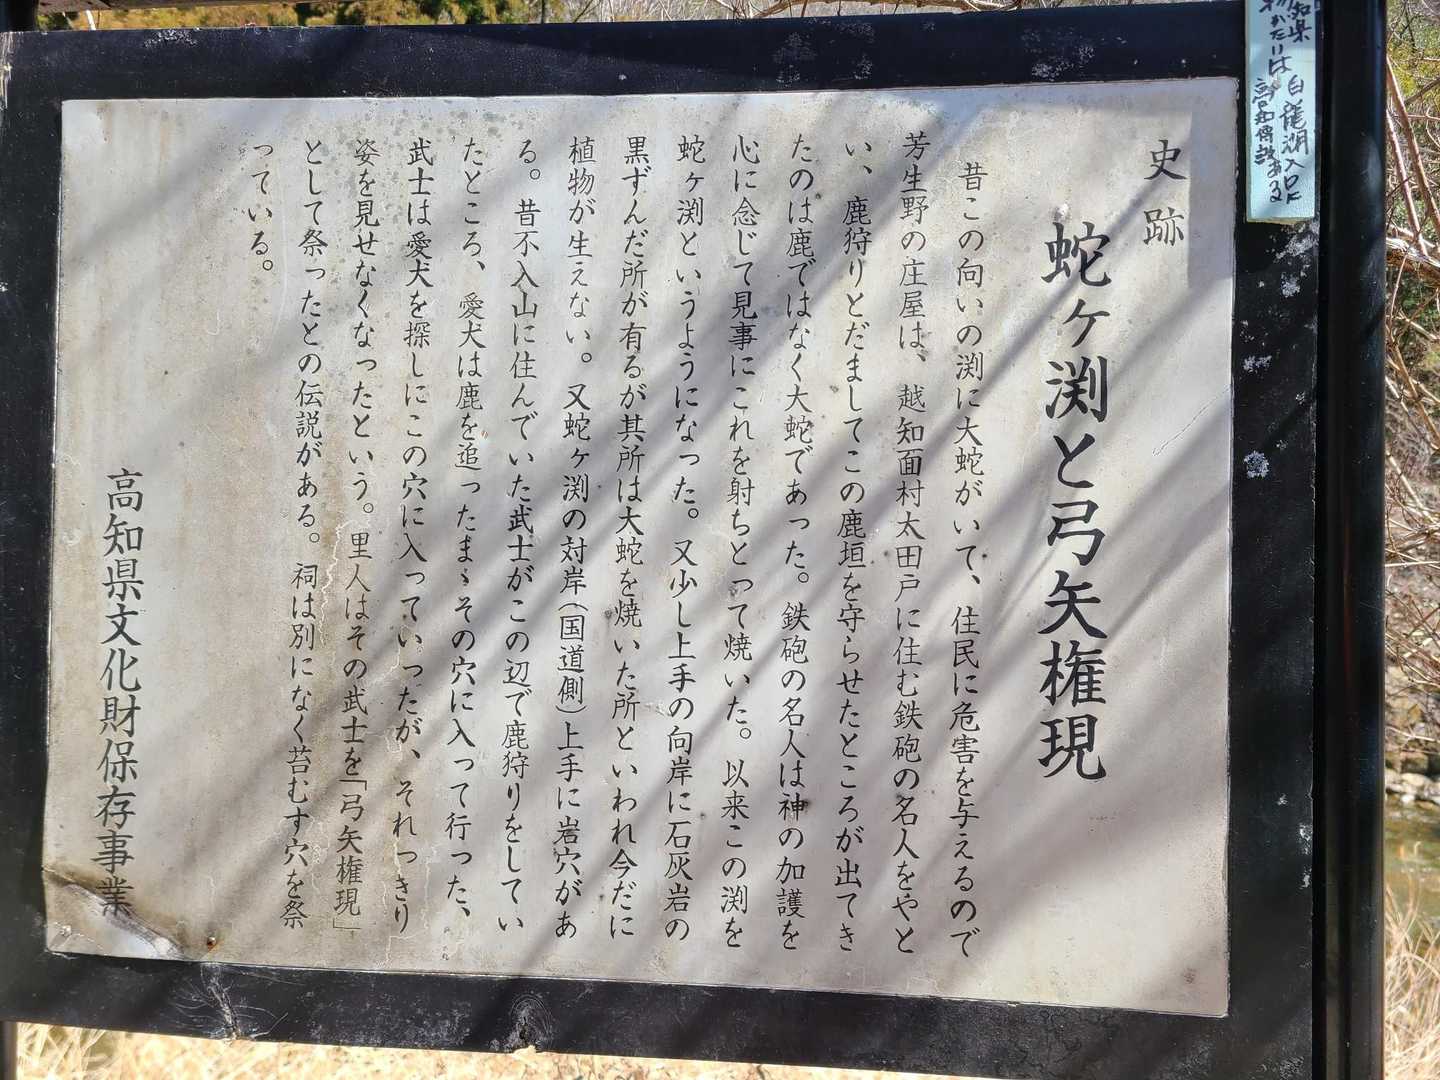 史跡
蛇ヶ渕と弓矢権現
昔この向いの渕に大蛇がいて、住民に危害を与えるので
芳生野の庄屋は、越知面村太田戸に住む鉄砲の名人をやと
い、鹿狩りとだましてこの鹿垣を守らせたところが出てき
たのは鹿ではなく大蛇であった。鉄砲の名人は神の加護を
心に念じて見事にこれを射ちとって焼いた。以来この渕を
蛇ヶ渕というようになった。又少し上手の向岸に石灰岩の
黒ずんだ所が有るが其所は大蛇を焼いた所といわれ今だに
植物が生えない。又蛇ヶ渕の対岸(国道側)上手に岩穴があ
る。昔不入山に住んでいた武士がこの辺で鹿狩りをしてい
たところ、愛犬は鹿を追ったまゝその穴に入って行った、
武士は愛犬を探しにこの穴に入っていったが、それっきり
姿を見せなくなったという。里人はその武士を「弓矢権現」
として祭ったとの伝説がある。祠は別になく苔むす穴を祭
っている。
高知県文化財保存事業
知県 白龍湖入口に
かたりは 高知傳説ある